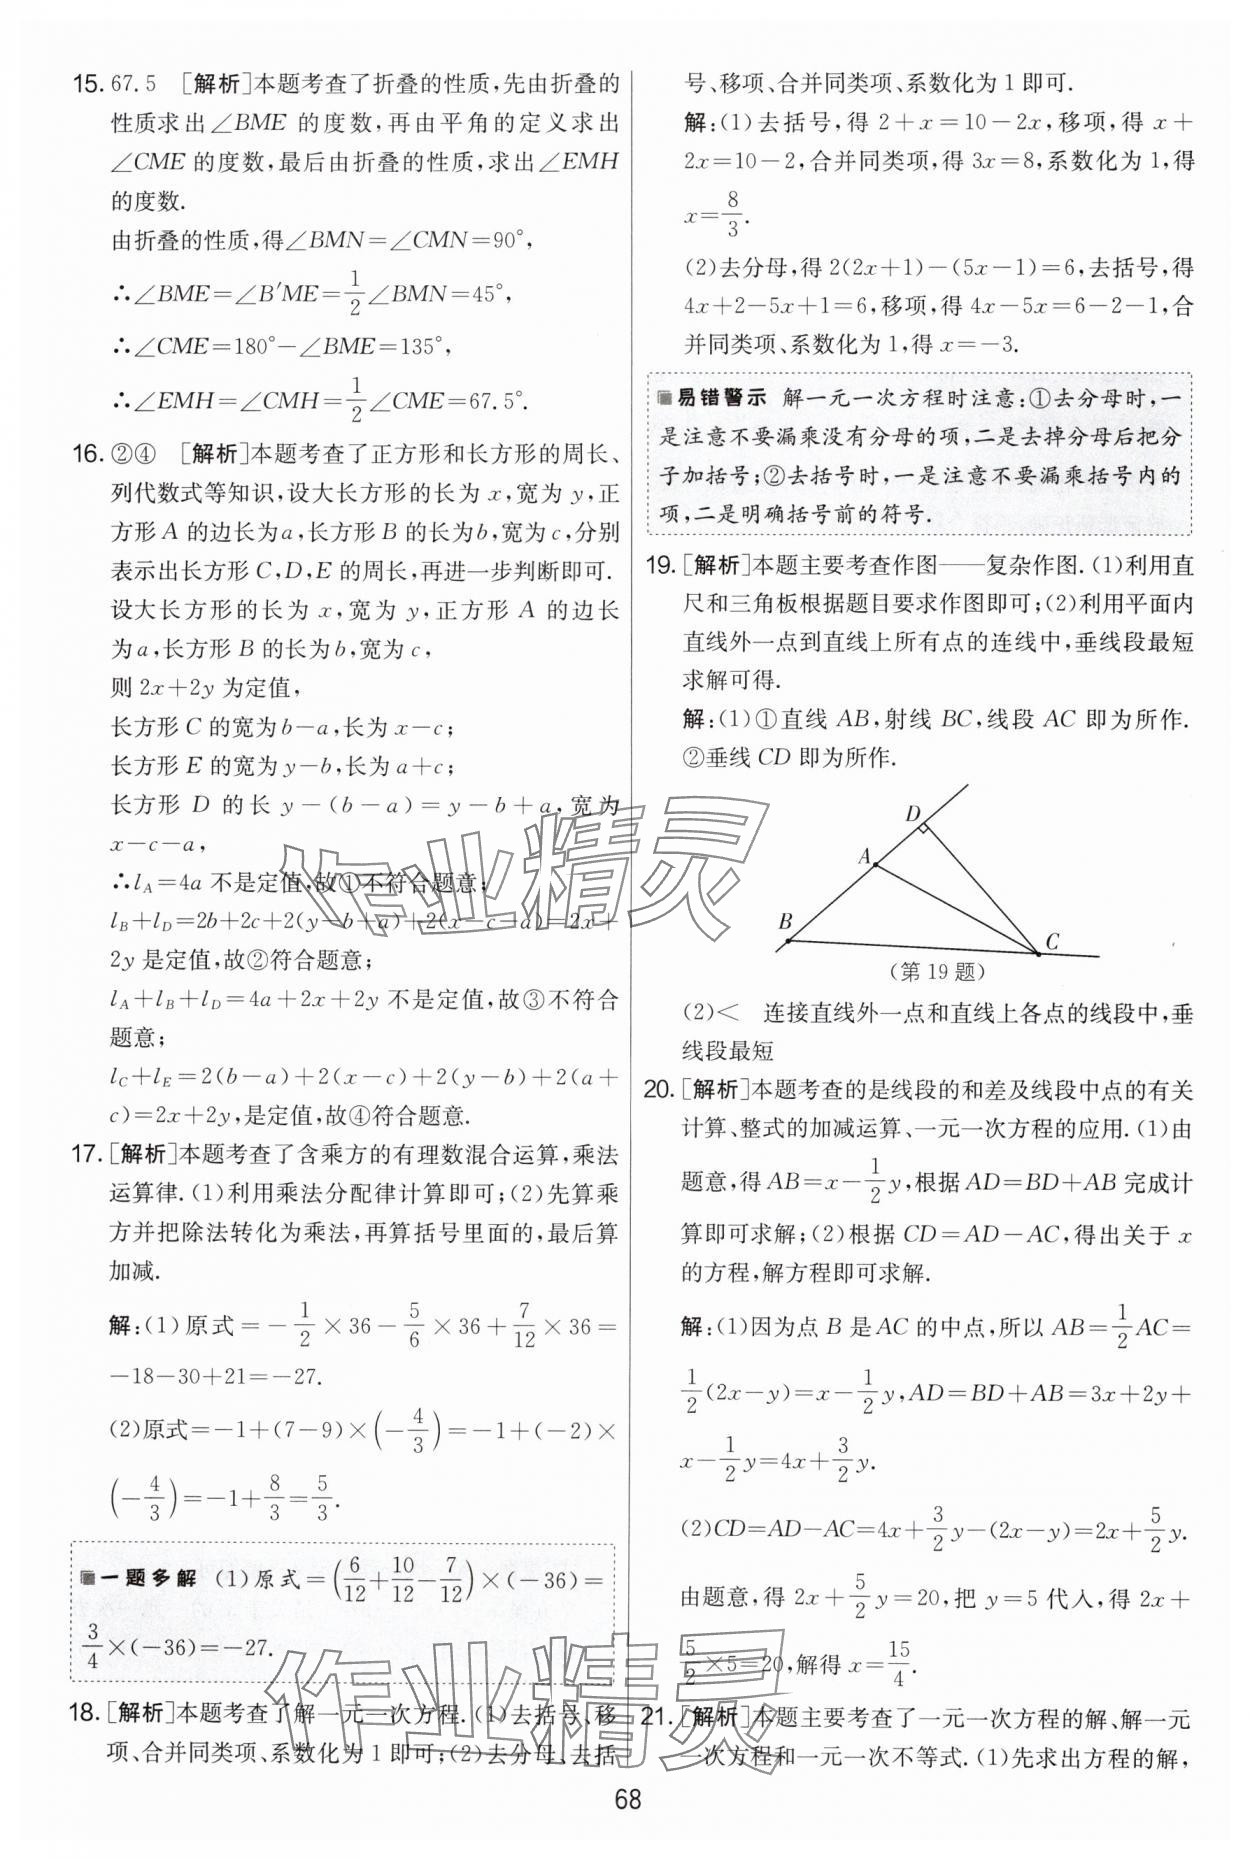 15. 67.5 [解析]本题考查了折叠的性质,先由折叠的
性质求出∠BME 的度数,再由平角的定义求出
∠CME 的度数,最后由折叠的性质,求出∠EMH
的度数.
由折叠的性质,得∠BMN=∠CMN=90°,
∴∠BME=∠B′ME=1/2∠BMN=45°,
∴∠CME=180°−∠BME=135°,
∴∠EMH=∠CMH=1/2∠CME=67.5°.
16. ②④ [解析]本题考查了正方形和长方形的周长、
列代数式等知识,设大长方形的长为 x,宽为 y,正
方形 A 的边长为a,长方形 B 的长为b,宽为 c,分别
表示出长方形 C,D,E 的周长,再进一步判断即可.
设大长方形的长为 x,宽为 y,正方形 A 的边长
为a,长方形 B 的长为b,宽为 c,
则 2x+2y 为定值,
长方形 C 的宽为b−a,长为 x−c;
长方形 E 的宽为y−b,长为 a+c;
长方形 D 的长 y−(b−a)=y−b+a,宽为
x−c−a,
∴l_A=4a 不是定值,故①不符合题意;
l_B+l_D=2b+2c+2(y−b+a)+2(x−c−a)=2x+
2y 是定值,故②符合题意;
l_A+l_B+l_D=4a+2x+2y 不是定值,故③不符合
题意;
l_C+l_E=2(b−a)+2(x−c)+2(y−b)+2(a+
c)=2x+2y,是定值,故④符合题意.
17. [解析]本题考查了含乘方的有理数混合运算,乘法
运算律.(1)利用乘法分配律计算即可;(2)先算乘
方并把除法转化为乘法,再算括号里面的,最后算
加减.
解:(1)原式=−1/2×36−5/6×36+7/12×36=
−18−30+21=−27.
(2)原式=−1+(7−9)×(−4/3)=−1+(−2)×
(−4/3)=−1+8/3=5/3.
一题多解 (1)原式=(6/12+10/12−7/12)×(−36)=
3/4×(−36)=−27.
18. [解析]本题考查了解一元一次方程.(1)去括号、移
项、合并同类项、系数化为 1 即可;(2)去分母、去括
号、移项、合并同类项、系数化为 1 即可.
解:(1)去括号,得 2+x=10−2x,移项,得 x+
2x=10−2,合并同类项,得 3x=8,系数化为 1,得
x=8/3.
(2)去分母,得 2(2x+1)−(5x−1)=6,去括号,得
4x+2−5x+1=6,移项,得 4x−5x=6−2−1,合
并同类项、系数化为 1,得 x=−3.
易错警示 解一元一次方程时注意:①去分母时,一
是注意不要漏乘没有分母的项,二是去掉分母后把分
子加括号;②去括号时,一是注意不要漏乘括号内的
项,二是明确括号前的符号.
19. [解析]本题主要考查作图——复杂作图.(1)利用直
尺和三角板根据题目要求作图即可;(2)利用平面内
直线外一点到直线上所有点的连线中,垂线段最短
求解可得.
解:(1)①直线 AB,射线 BC,线段 AC 即为所作.
②垂线 CD 即为所作.
D
A
B
C
(第 19 题)
(2)< 连接直线外一点和直线上各点的线段中,垂
线段最短
20. [解析]本题考查的是线段的和差及线段中点的有关
计算、整式的加减运算、一元一次方程的应用.(1)由
题意,得 AB=x−1/2y,根据 AD=BD+AB 完成计
算即可求解;(2)根据 CD=AD−AC,得出关于 x
的方程,解方程即可求解.
解:(1)因为点 B 是 AC 的中点,所以 AB=1/2AC=
1/2(2x−y)=x−1/2y,AD=BD+AB=3x+2y+
x−1/2y=4x+3/2y.
(2)CD=AD−AC=4x+3/2y−(2x−y)=2x+5/2y.
由题意,得 2x+5/2y=20,把 y=5 代入,得 2x+
5/2×5=20,解得 x=15/4.
21. [解析]本题主要考查了一元一次方程的解、解一元
一次方程和一元一次不等式.(1)先求出方程的解,
68
作业精灵
作业精灵